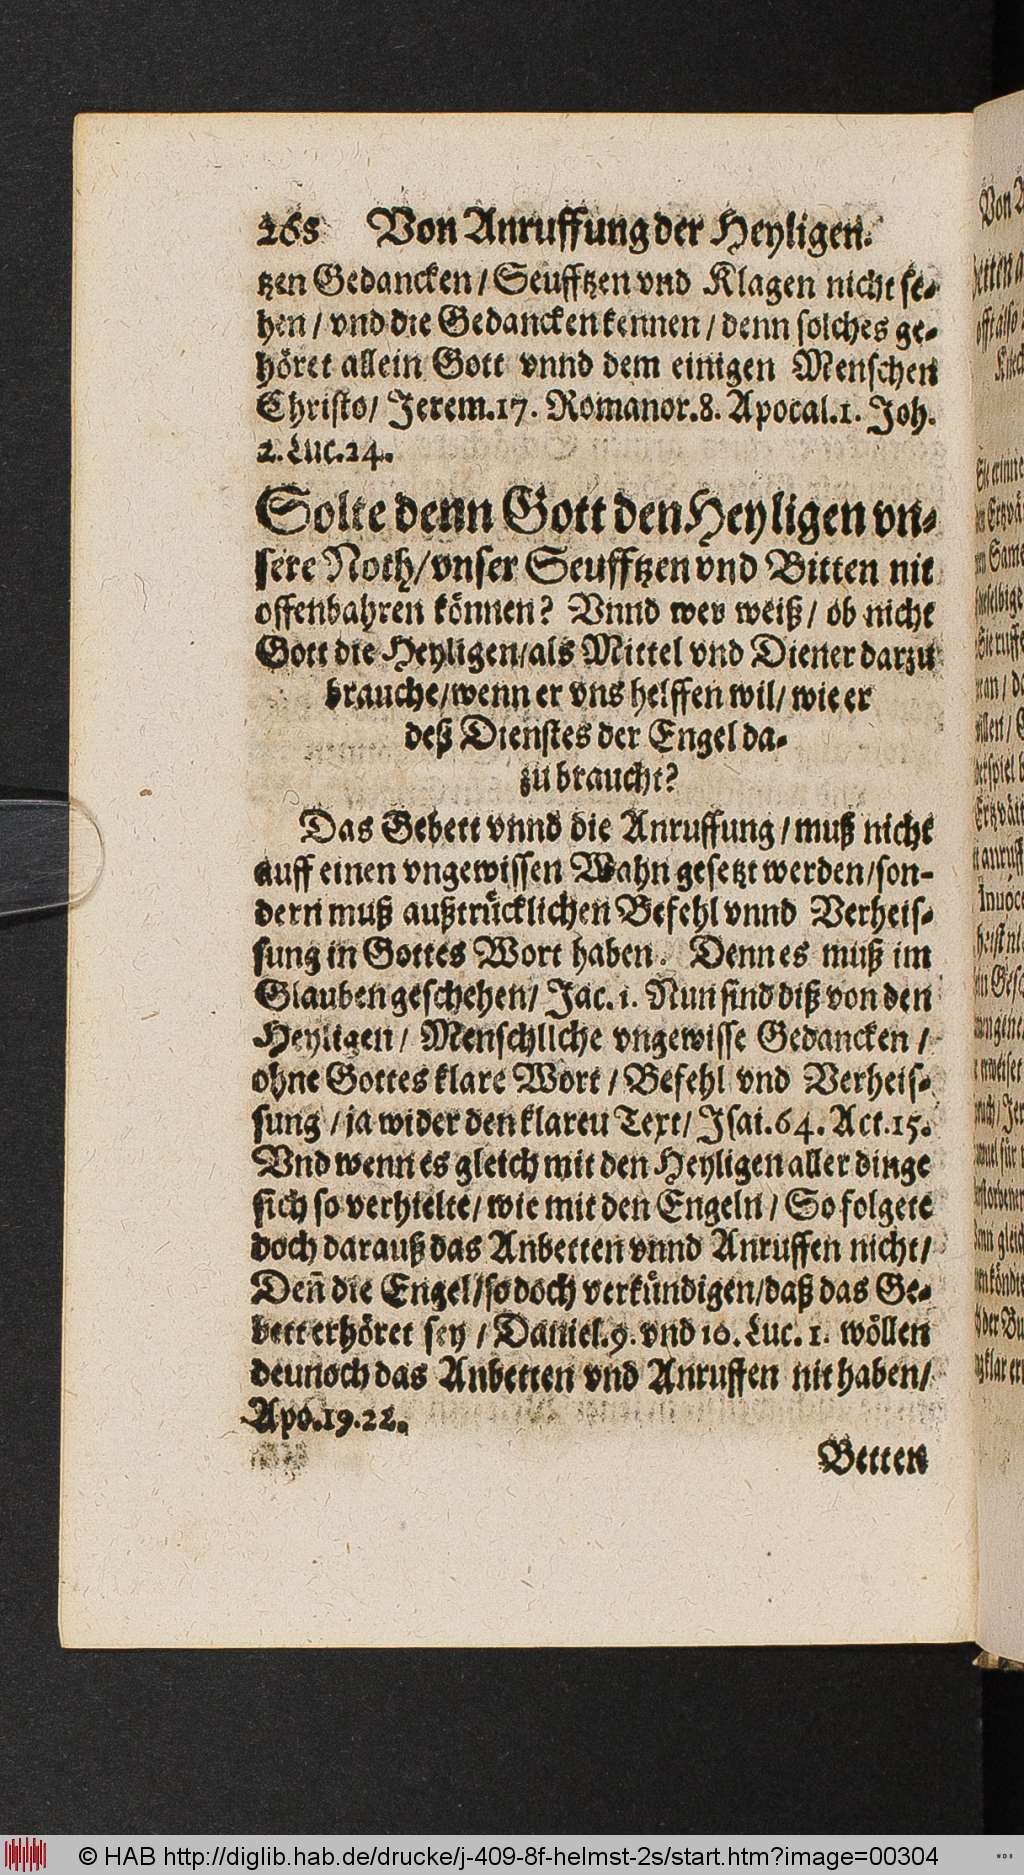 268 Von Anruffung der Heyligen.
tzen Gedancken / Seufftzen vnd Klagen nicht se-
hen / vnd die Gedancken kennen / denn solches ge-
höret allein Gott vnnd dem einigen Menschen
Christo / Jerem. 17. Romanor. 8. Apocal. 1. Joh.
2. Luc. 24.
Solte denn Gott den Heyligen vn-
sere Noth / vnser Seufftzen vnd Bitten nit
offenbahren können? Vnnd wer weiß / ob nicht
Gott die Heyligen / als Mittel vnd Diener darzu
brauche / wenn er vns helffen wil / wie er
deß Dienstes der Engel da-
zu braucht?
Das Gebett vnnd die Anruffung / muß nicht
auff einen vngewissen Wahn gesetzt werden / son-
dern muß außtrücklichen Befehl vnnd Verheis-
sung in Gottes Wort haben. Denn es muß im
Glauben geschehen / Jac. 1. Nun sind diß von den
Heyligen / Menschliche vngewisse Gedancken /
ohne Gottes klare Wort / Befehl vnd Verheis-
sung / ja wider den klareu Text / Jsai. 64. Act. 15.
Vnd wenn es gleich mit den Heyligen aller dinge
sich so verhielte / wie mit den Engeln / So folgete
doch darauß das Anbetten vnnd Anruffen nicht /
Deñ die Engel / so doch verkündigen / daß das Ge-
bett erhöret sey / Daniel. 9. vnd 10. Luc. 1. wöllen
deunoch das Anbetten vnd Anruffen nit haben /
Apo. 19. 22.
Betten
© HAB http://diglib.hab.de/drucke/j-409-8f-helmst-2s/start.htm?image=00304